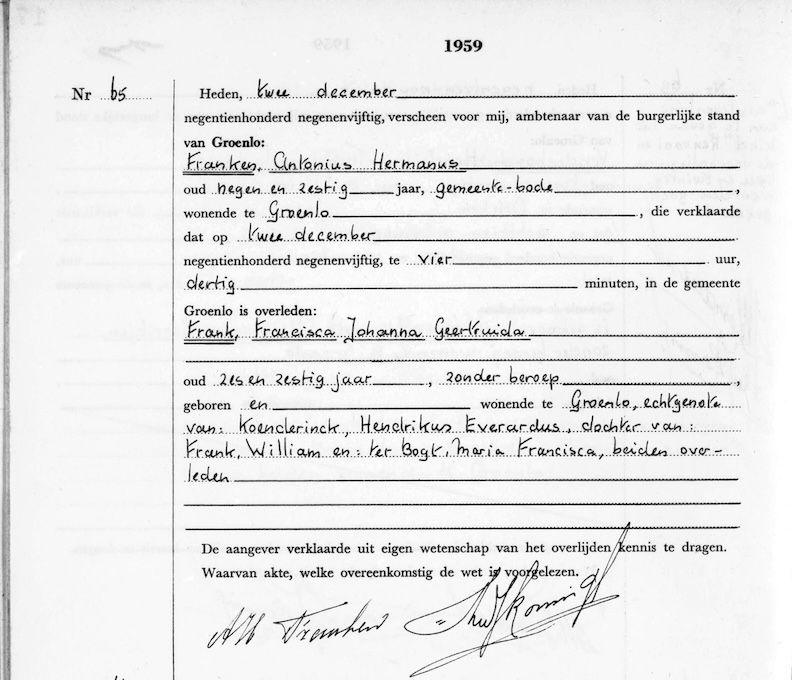 1959
Nr 65 Heden, twee december
negentienhonderd negenenvijftig, verscheen voor mij, ambtenaar van de burgerlijke stand
van Groenlo:
Franken, Antonius Hermanus
oud negen en zestig jaar, gemeente-bode,
wonende te Groenlo, die verklaarde
dat op twee december
negentienhonderd negenenvijftig, te vier uur,
dertig minuten, in de gemeente
Groenlo is overleden:
Frank, Francisca Johanna Geertruida
oud zes en zestig jaar, zonder beroep,
geboren en wonende te Groenlo, echtgenote
van: Koenderinck, Hendrikus Everardus, dochter van:
Frank, William en: ter Bogt, Maria Francisca, beiden over-
leden
De aangever verklaarde uit eigen wetenschap van het overlijden kennis te dragen.
Waarvan akte, welke overeenkomstig de wet is voorgelezen.
AH Franken